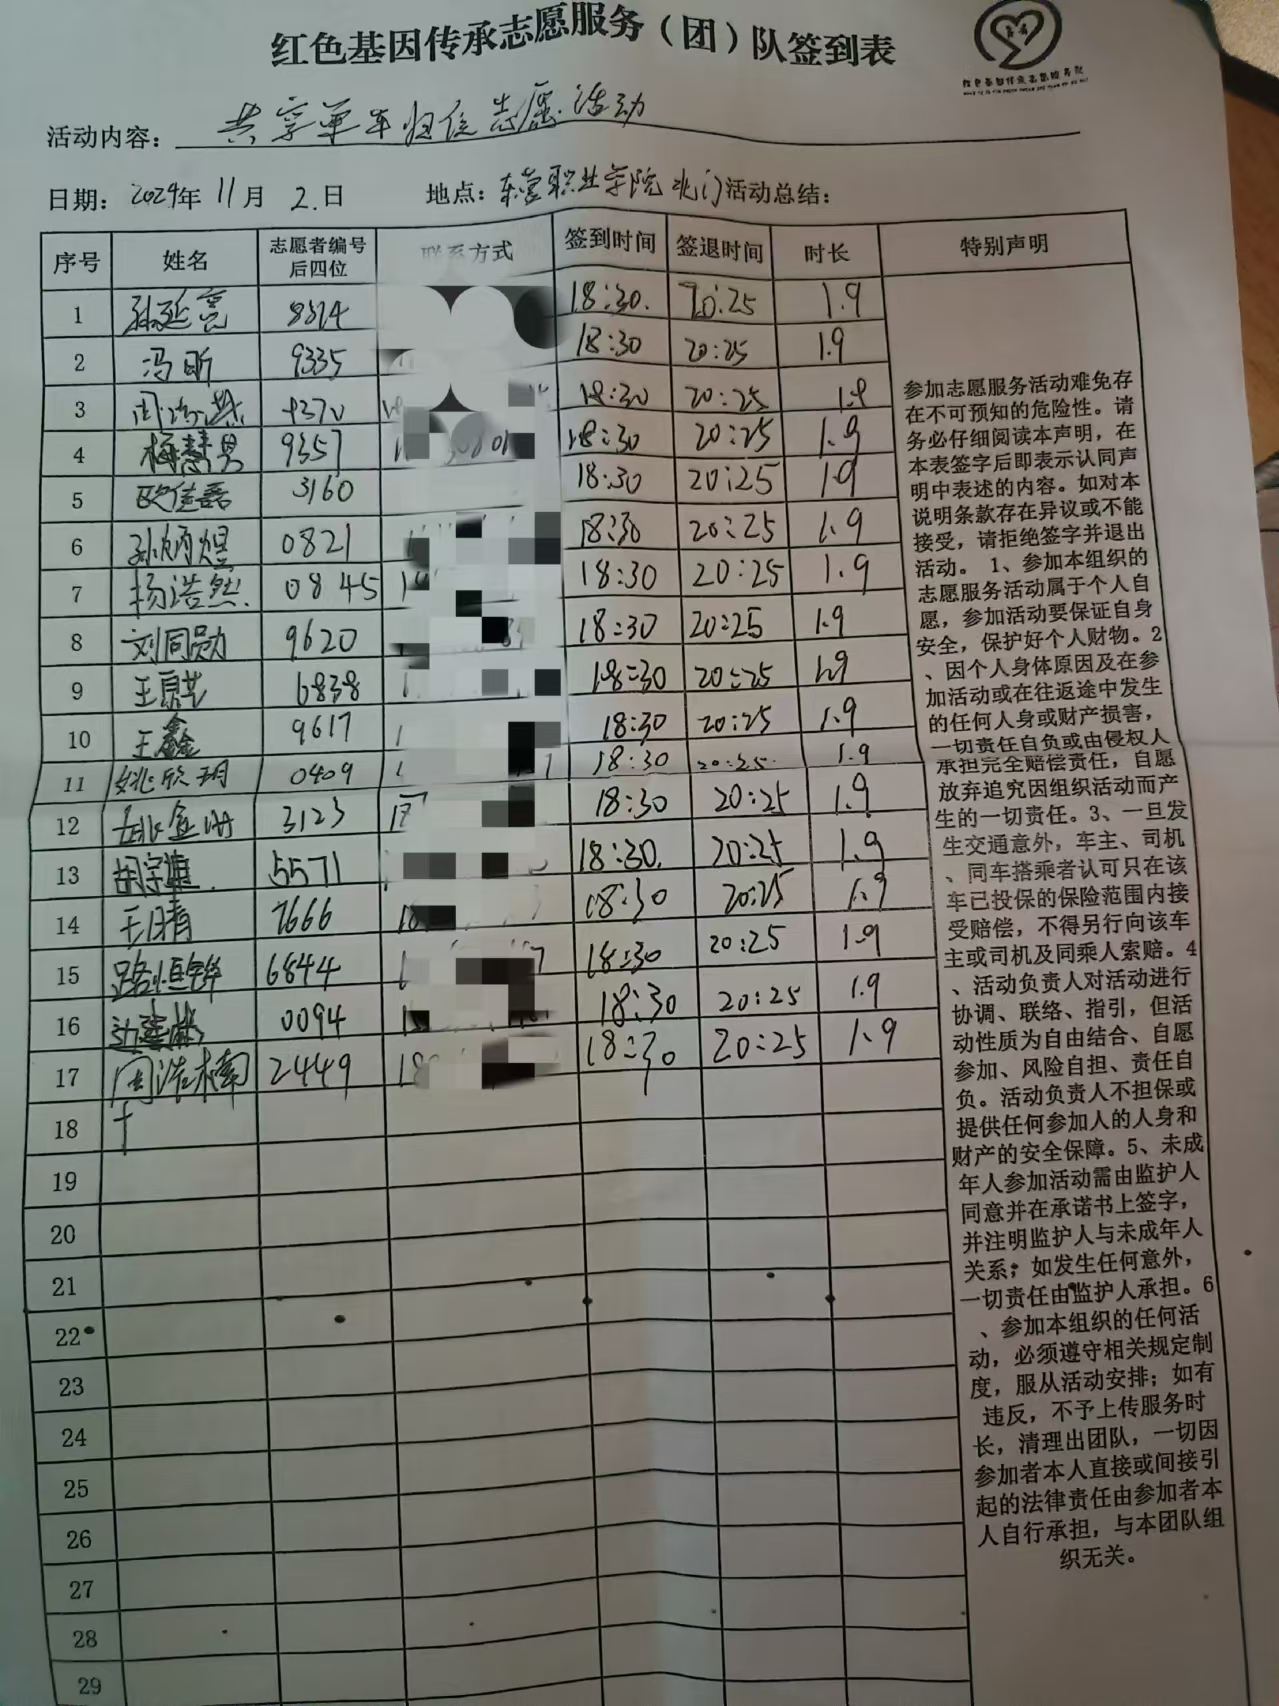 红色基因传承志愿服务（团）队签到表
活动内容：共享单车归位志愿活动
日期：2024年11月2.日 地点：东营职业学院北门活动总结：
序号 姓名 志愿者编号后四位 联系方式 签到时间 签退时间 时长 特别声明
1 孙延亮 8374 18:30. 20:25 1.9
2 冯昕 9335 18:30 20:25 1.9
3 18:30 20:25 1.9
4 梅慧男 9357 18:30 20:25 1.9
5 欧佳磊 3160 18:30 20:25 1.9
6 孙炳煜 0821 18:30 20:25 1.9
7 杨浩然. 0845 18:30 20:25 1.9
8 刘同勋 9620 18:30 20:25 1.9
9 6838 18:30 20:25 1.9
10 王鑫 9617 18:30 20:25 1.9
11 姚欣玥 0409 18:30 20:25 1.9
12 3123 18:30 20:25 1.9
13 5571 18:30. 20:25 1.9
14 7666 18:30 20:25 1.9
15 6844 18:30 20:25 1.9
16 0094 18:30 20:25 1.9
17 周浩楠 2449 18:30 20:25 1.9
18
19
20
21
22
23
24
25
26
27
28
29
参加志愿服务活动难免存
在不可预知的危险性。请
务必仔细阅读本声明，在
本表签字后即表示认同声
明中表述的内容。如对本
说明条款存在异议或不能
接受，请拒绝签字并退出
活动。 1、参加本组织的
志愿服务活动属于个人自
愿，参加活动要保证自身
安全，保护好个人财物。2
、因个人身体原因及在参
加活动或在往返途中发生
的任何人身或财产损害，
一切责任自负或由侵权人
承担完全赔偿责任，自愿
放弃追究因组织活动而产
生的一切责任。3、一旦发
生交通意外，车主、司机
、同车搭乘者认可只在该
车已投保的保险范围内接
受赔偿，不得另行向该车
主或司机及同乘人索赔。4
、活动负责人对活动进行
协调、联络、指引，但活
动性质为自由结合、自愿
参加、风险自担、责任自
负。活动负责人不担保或
提供任何参加人的人身和
财产的安全保障。5、未成
年人参加活动需由监护人
同意并在承诺书上签字，
并注明监护人与未成年人
关系；如发生任何意外，
一切责任由监护人承担。6
、参加本组织的任何活
动，必须遵守相关规定制
度，服从活动安排；如有
违反，不予上传服务时
长，清理出团队，一切因
参加者本人直接或间接引
起的法律责任由参加者本
人自行承担，与本团队组
织无关。